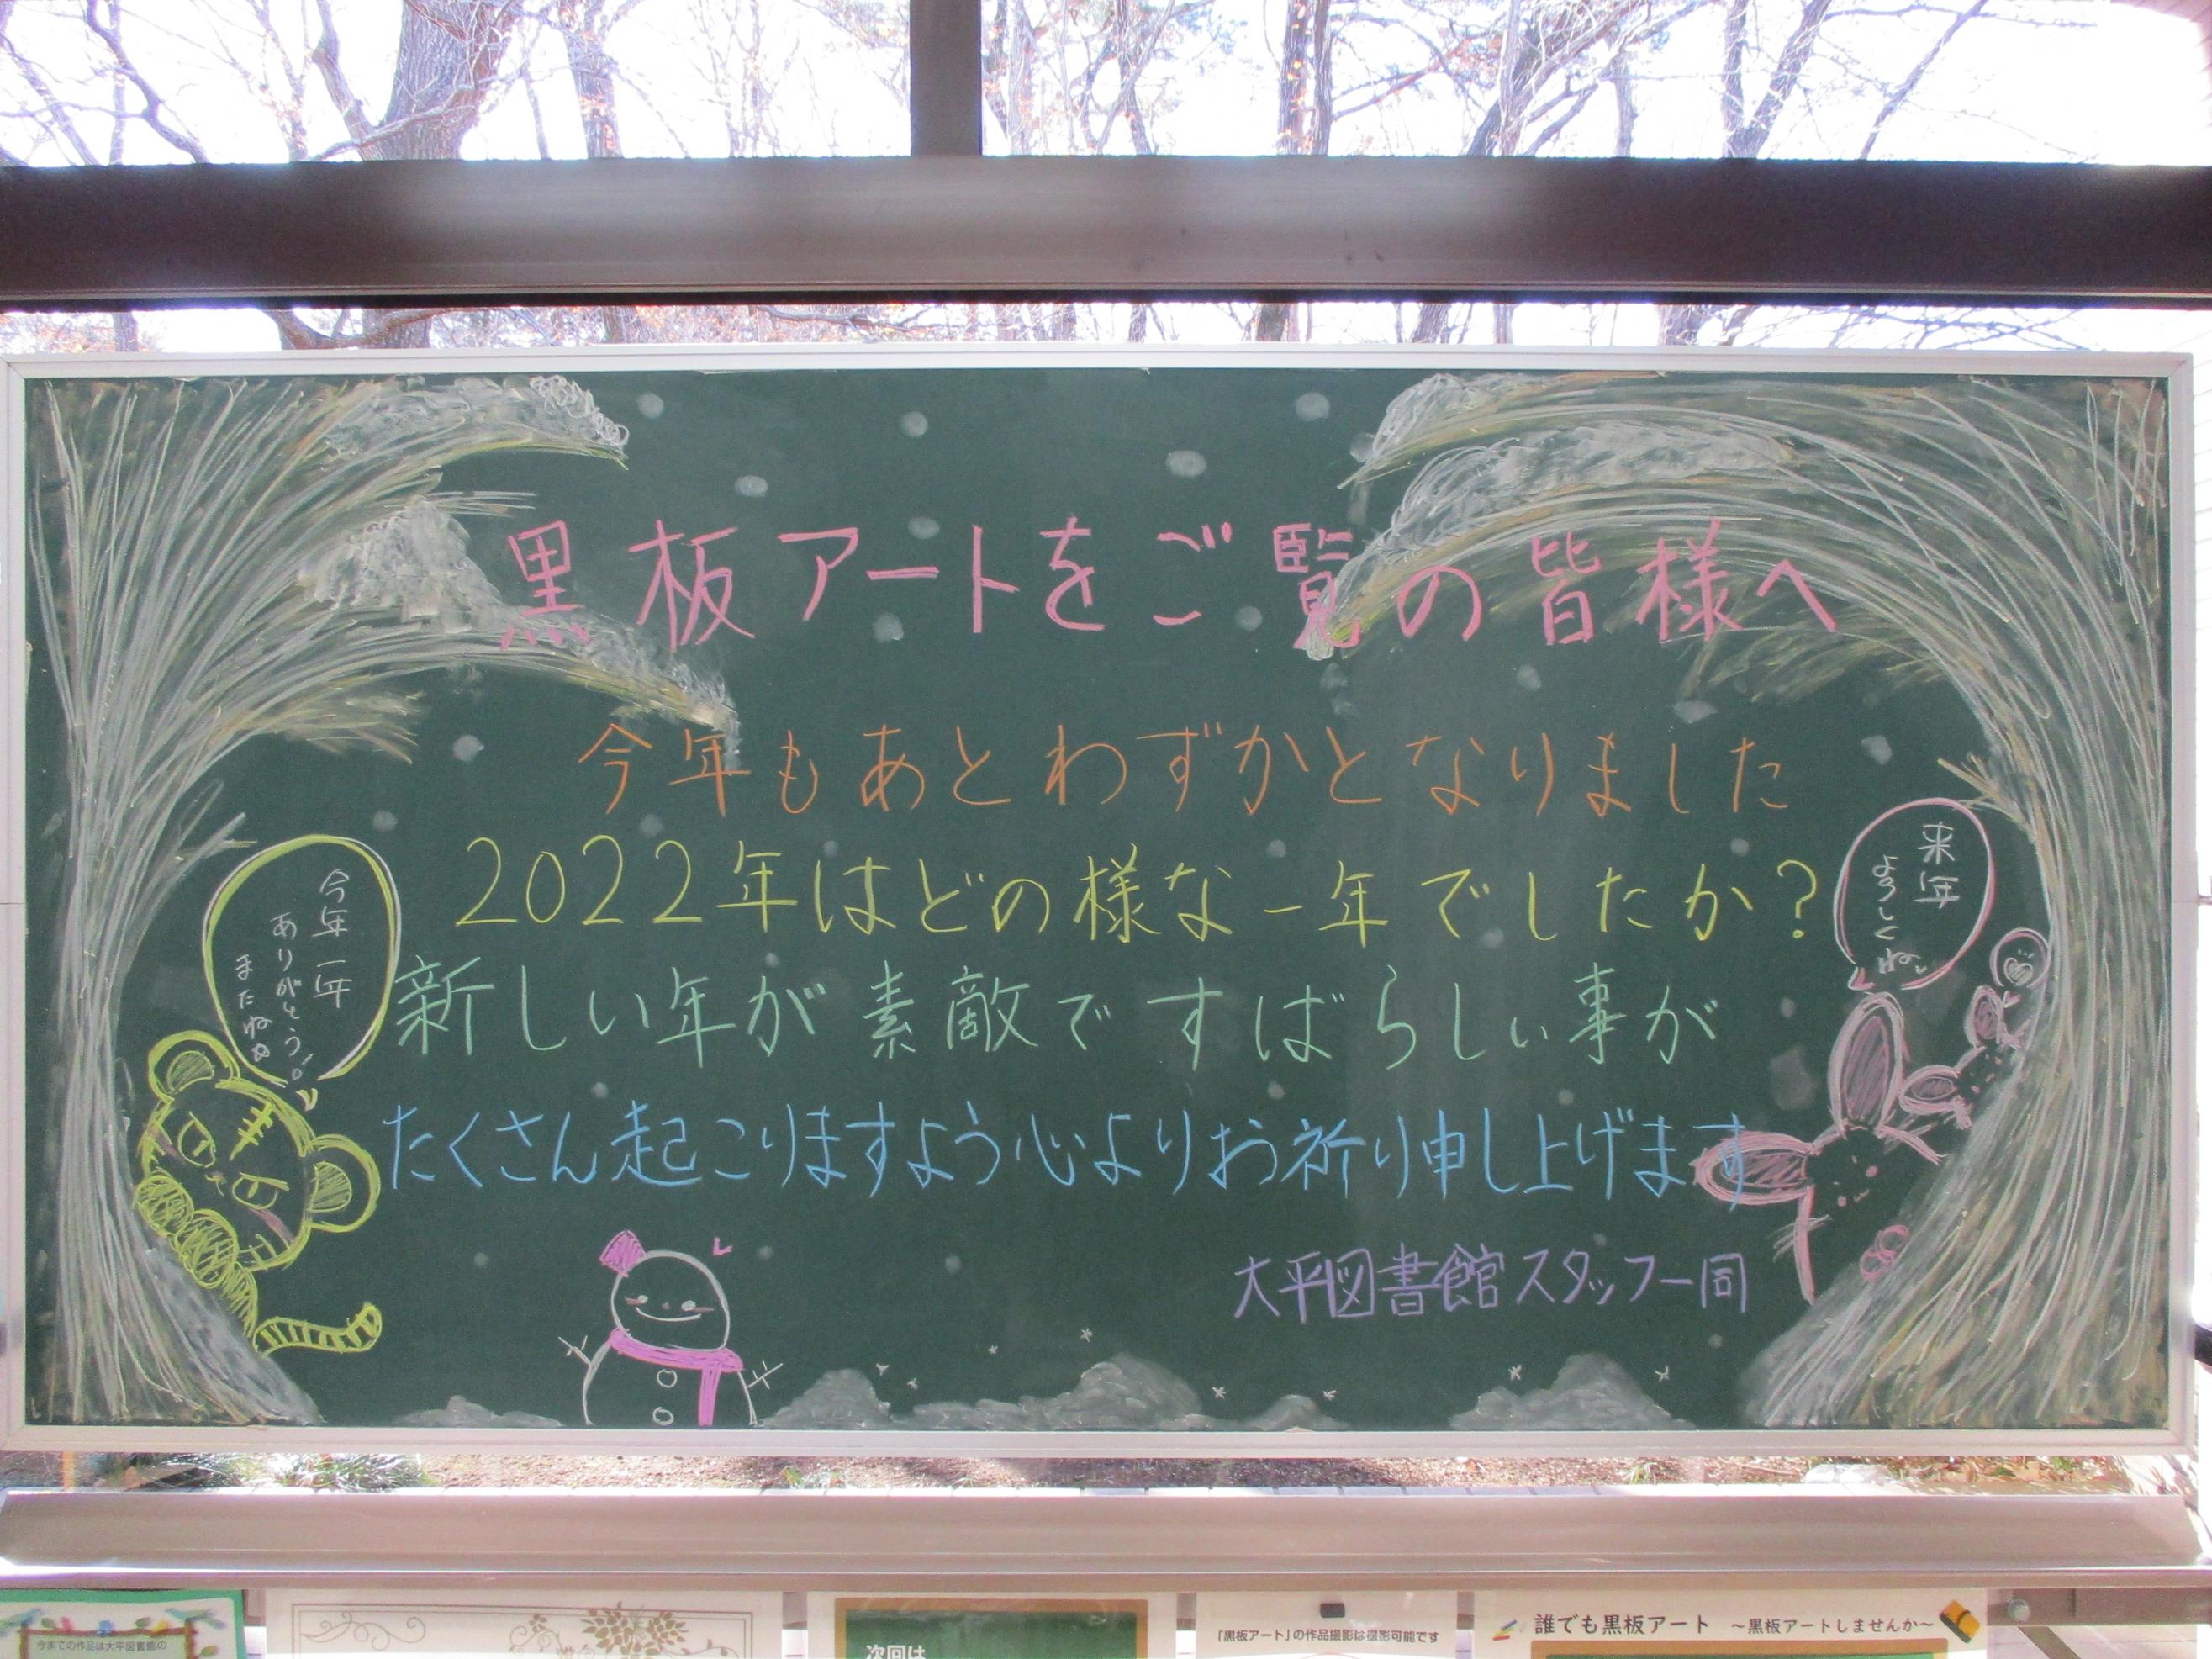 黒板アートをご覧の皆様へ
今年もあとわずかとなりました
2022年はどの様な一年でしたか？
新しい年が素敵ですばらしい事が
たくさん起こりますよう心よりお祈り申し上げます
大平図書館スタッフ一同
今年一年
ありがとう！
またね
来年
よろしくね
今までの作品は大平図書館の
次回は
「黒板アート」の作品撮影は撮影可能です
誰でも黒板アート ～黒板アートしませんか～